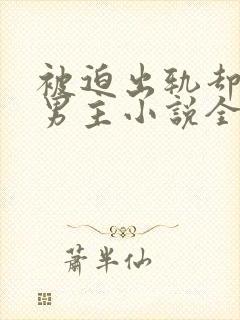 被迫出轨却
男主小说全
萧半仙